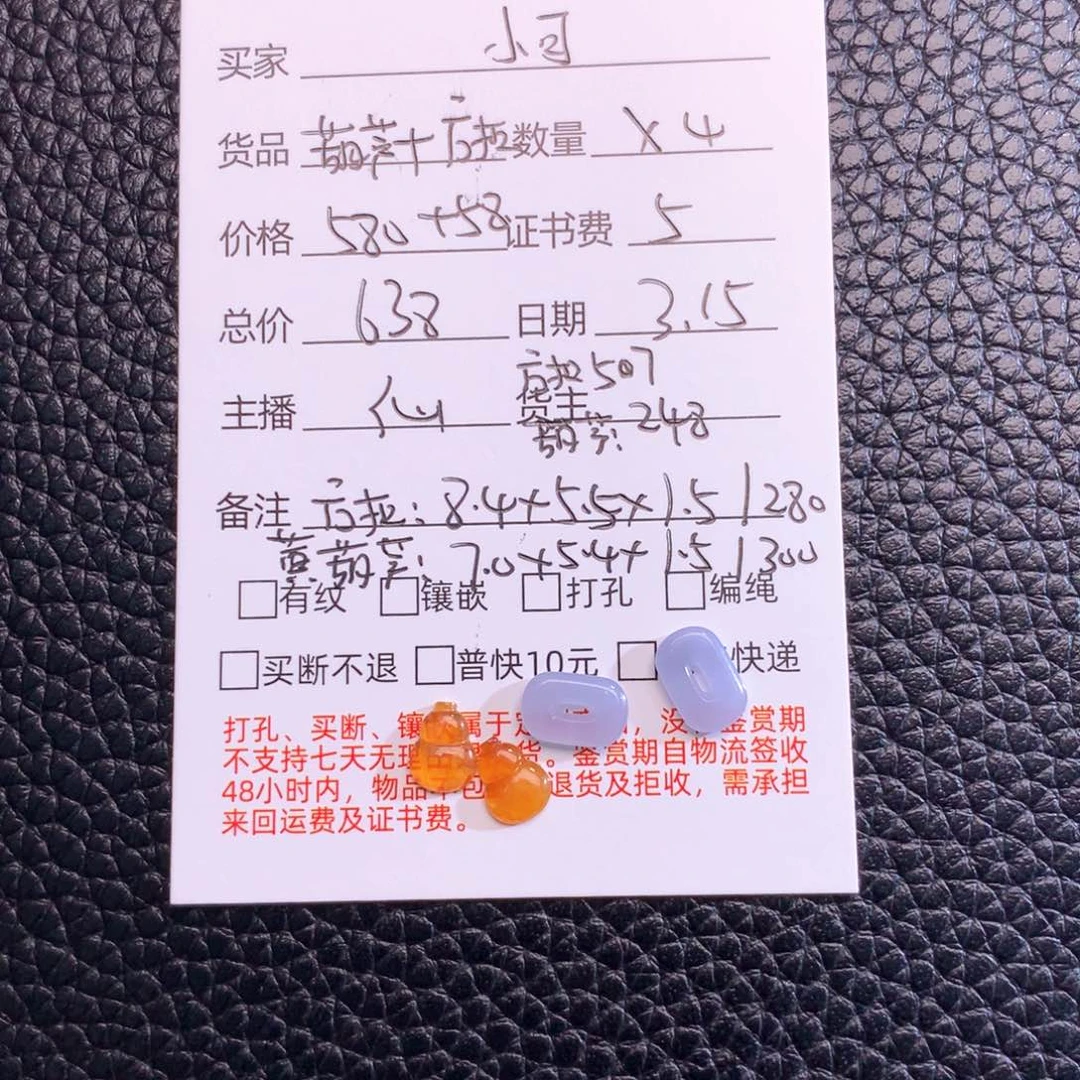 买家 小司
货品 葫芦+方拉 数量 X4
价格 580+58 证书费 5
总价 638 日期 3.15
主播 仙 货主
方拉507
葫芦:248
备注 方拉:8.4+5.5×1.5/280
黄葫芦:7.0+5.4+1.5/300
□有纹 □镶嵌 □打孔 □编绳
□买断不退 □普快10元 □快递
打孔、买断、镶属于定品,没鉴赏期
不支持七天无理货。鉴赏期自物流签收
48小时内,物品不包退货及拒收,需承担
来回运费及证书费。